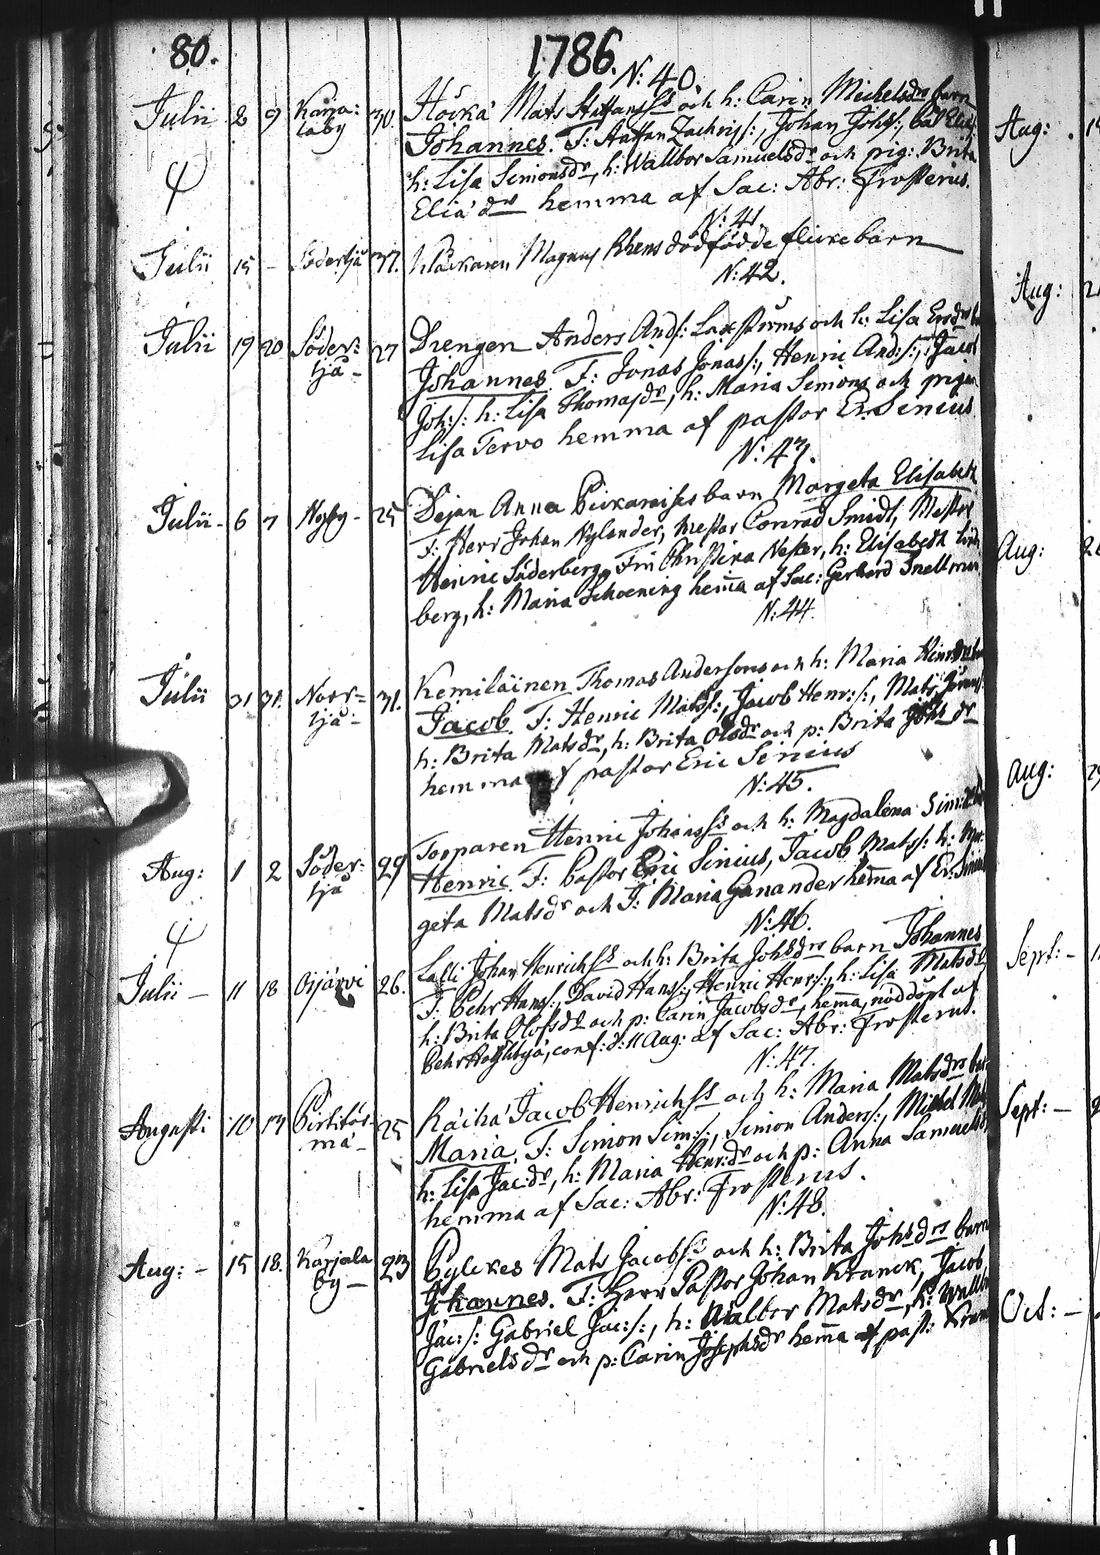 80. 1786.
N: 40.
Julii 8 9 Karja-laby 30. Höckä Mats Staffansss och h: Carin Michelsdrs barn
Johannes. F: Staffan Zachriss:, Johan Johs:,
h: Lisa Simonsdr, h: Wallbor Samuelsdr och pig: Brita
Eliä dr hemma af Sac: Abr: Frosterus.
N: 41.
Julii 15 – Söderijä 37. Magnus Rhens dödfödde flickebarn
N: 42.
Julii 19 20 Söder-ijä 27 Drengen Anders Ands: Laxströms och h: Lisa
Johannes. F: Jonas Jonass:, Henric Ands:, Jacob
Joh:s: h: Lisa Thomasdr, h: Maria Simons och pigan
Lisa Tervo hemma af pastor Er: Sinius
N: 43.
Julii 6 7 Nyby 25 Dejan Anna barn Margeta Elisabeth
F: Herr Johan Nylander, Mestar Conrad Smidt, Mestar
Henric Söderberg, Fru Christina Nester, h: Elisabeth
berg, h: Maria Schoening hem̄a af Sac: Gerhard Snellman
N: 44.
Julii 31 31. Norr-ijä 31. Kemiläinen Thomas Andersons och h: Maria
Jacob. F: Henric Matss:, Jacob Henr:s:, Mats
h: Brita Matsdr, h: Brita Olsdr och p: Brita Johs dr
hemma af pastor Eric Sinius
N: 45.
Aug: 1 2 Söder-ijä 29 Torparen Henric Johanss och h: Magdalena
Henric. F: Pastor Eric Sinius, Jacob Matss: h: Mar-
geta Matsdr och J: Maria Ganander hem̄a af Er: Sinius
N: 46.
Julii – 11 18 Oijärvi 26. Lalli Johan Henrichss och h: Brita Johsdrs barn Johannes
F: Pehr Hanss:, David Hanss:, Henric Henr:s:, h: Lisa Matsdr
h: Brita Olofsdr och p: Carin Jacobsdr, hem̄a, nöddöpt af
Pehr conf: d: 11 Aug: af Sac: Abr: Frosterus.
N: 47.
August: 10 14 25 Räihä Jacob Henrichss och h: Maria Matsdrs bar
Maria. F: Simon Sim:s:, Simon Anderss:, Michel
h: Lisa Jac:dr, h: Maria Henr:dr och p: Anna Samuelsd
hemma af Sac: Abr: Frosterus.
N: 48.
Aug: – 15 18. Karjala by – 23 Pylckes Mats Jacobss och h: Brita Johsdrs barn
Johannes. F: Herr Pastor Johan Kranck, Jacob
Jac:s: Gabriel Jac:s:, h: Walbor Matsdr, h:
Gabrielsdr och p: Carin Josephsdr hem̄a af past:
Aug:
Aug:
Aug:
Aug:
Sept: –
Sept: –
Oct: –